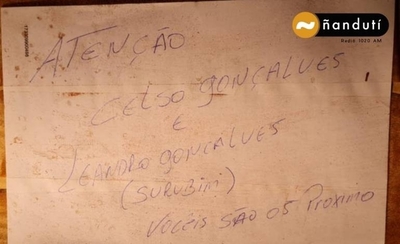 ñandutí
Radio 1020 AM
ATENÇÃO
CELSO GONÇALVES
E
LEANDRO GONCALVES
(SURUBIM)
VOCÉIS SÃO OS PROXIMO